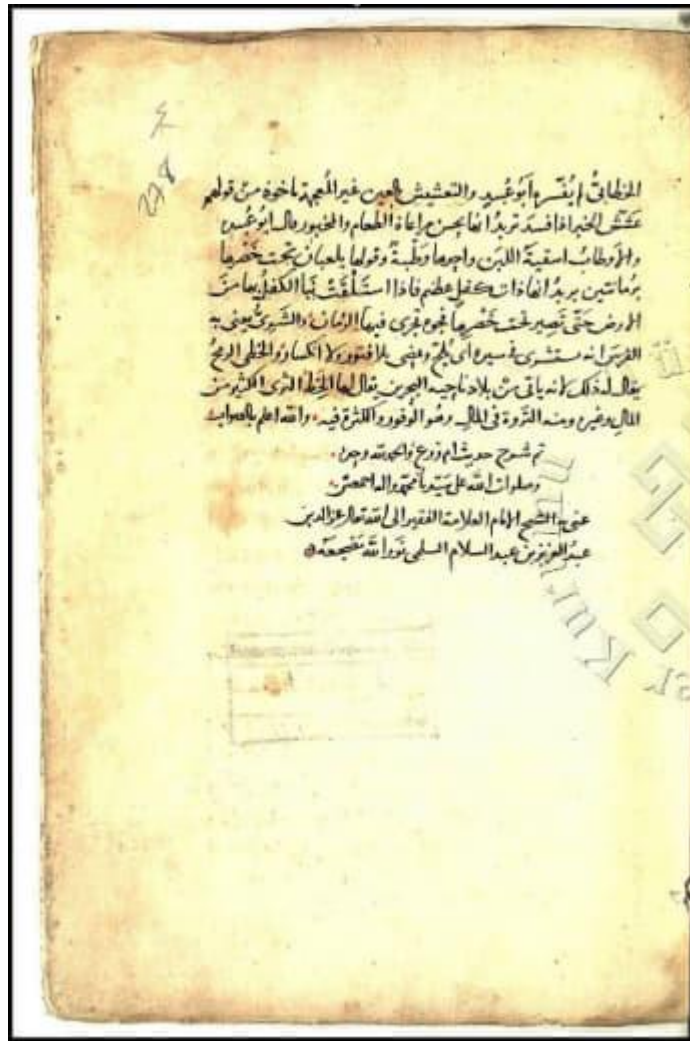 278
الخطابيُّ لم يُفسّره أبو عُبيد والتعشيش بالعين غير المُعجمة ماخوذ من قولهم
عَشّش الخبز اذا فسد تريد انها تحسن مراعاة الطعام والمخبوز قال ابو عُبيد
والاوطابُ اسقية اللبن واحدها وَطبة وقولها يلعبان تحت خَصْرها
برمانتين يريد انها ذات كفل عظيم فاذا استَلْقَتْ نَبا الكفلُ بها من
الارض حتّى تصير تحت خَصْرها فجوة تجرى فيها الرُمان والشَرىُّ يعنى به
الفرسَ انه يستشرى فى سيره اى يلجّ ويمضى بلا فتور ولا انكسار والخطى الرمحُ
يقال له ذلك لانه ياتى من بلاد ناحيه البحرين يقال لها الخط الثرى الكثير من
المال وغيره ومنه الثروة فى المال وهو الوفور والكثرة فيه والله اعلم بالصواب
تم شرح حديث ام زرع والحمد لله وحده
وصلوات الله على سيدنا محمد واله اجمعين
عنى به الشيخ الامام العلامة الفقير الى الله تعالى عز الدين
عبد العزيز بن عبد السلام السلمى نور الله مضجعه